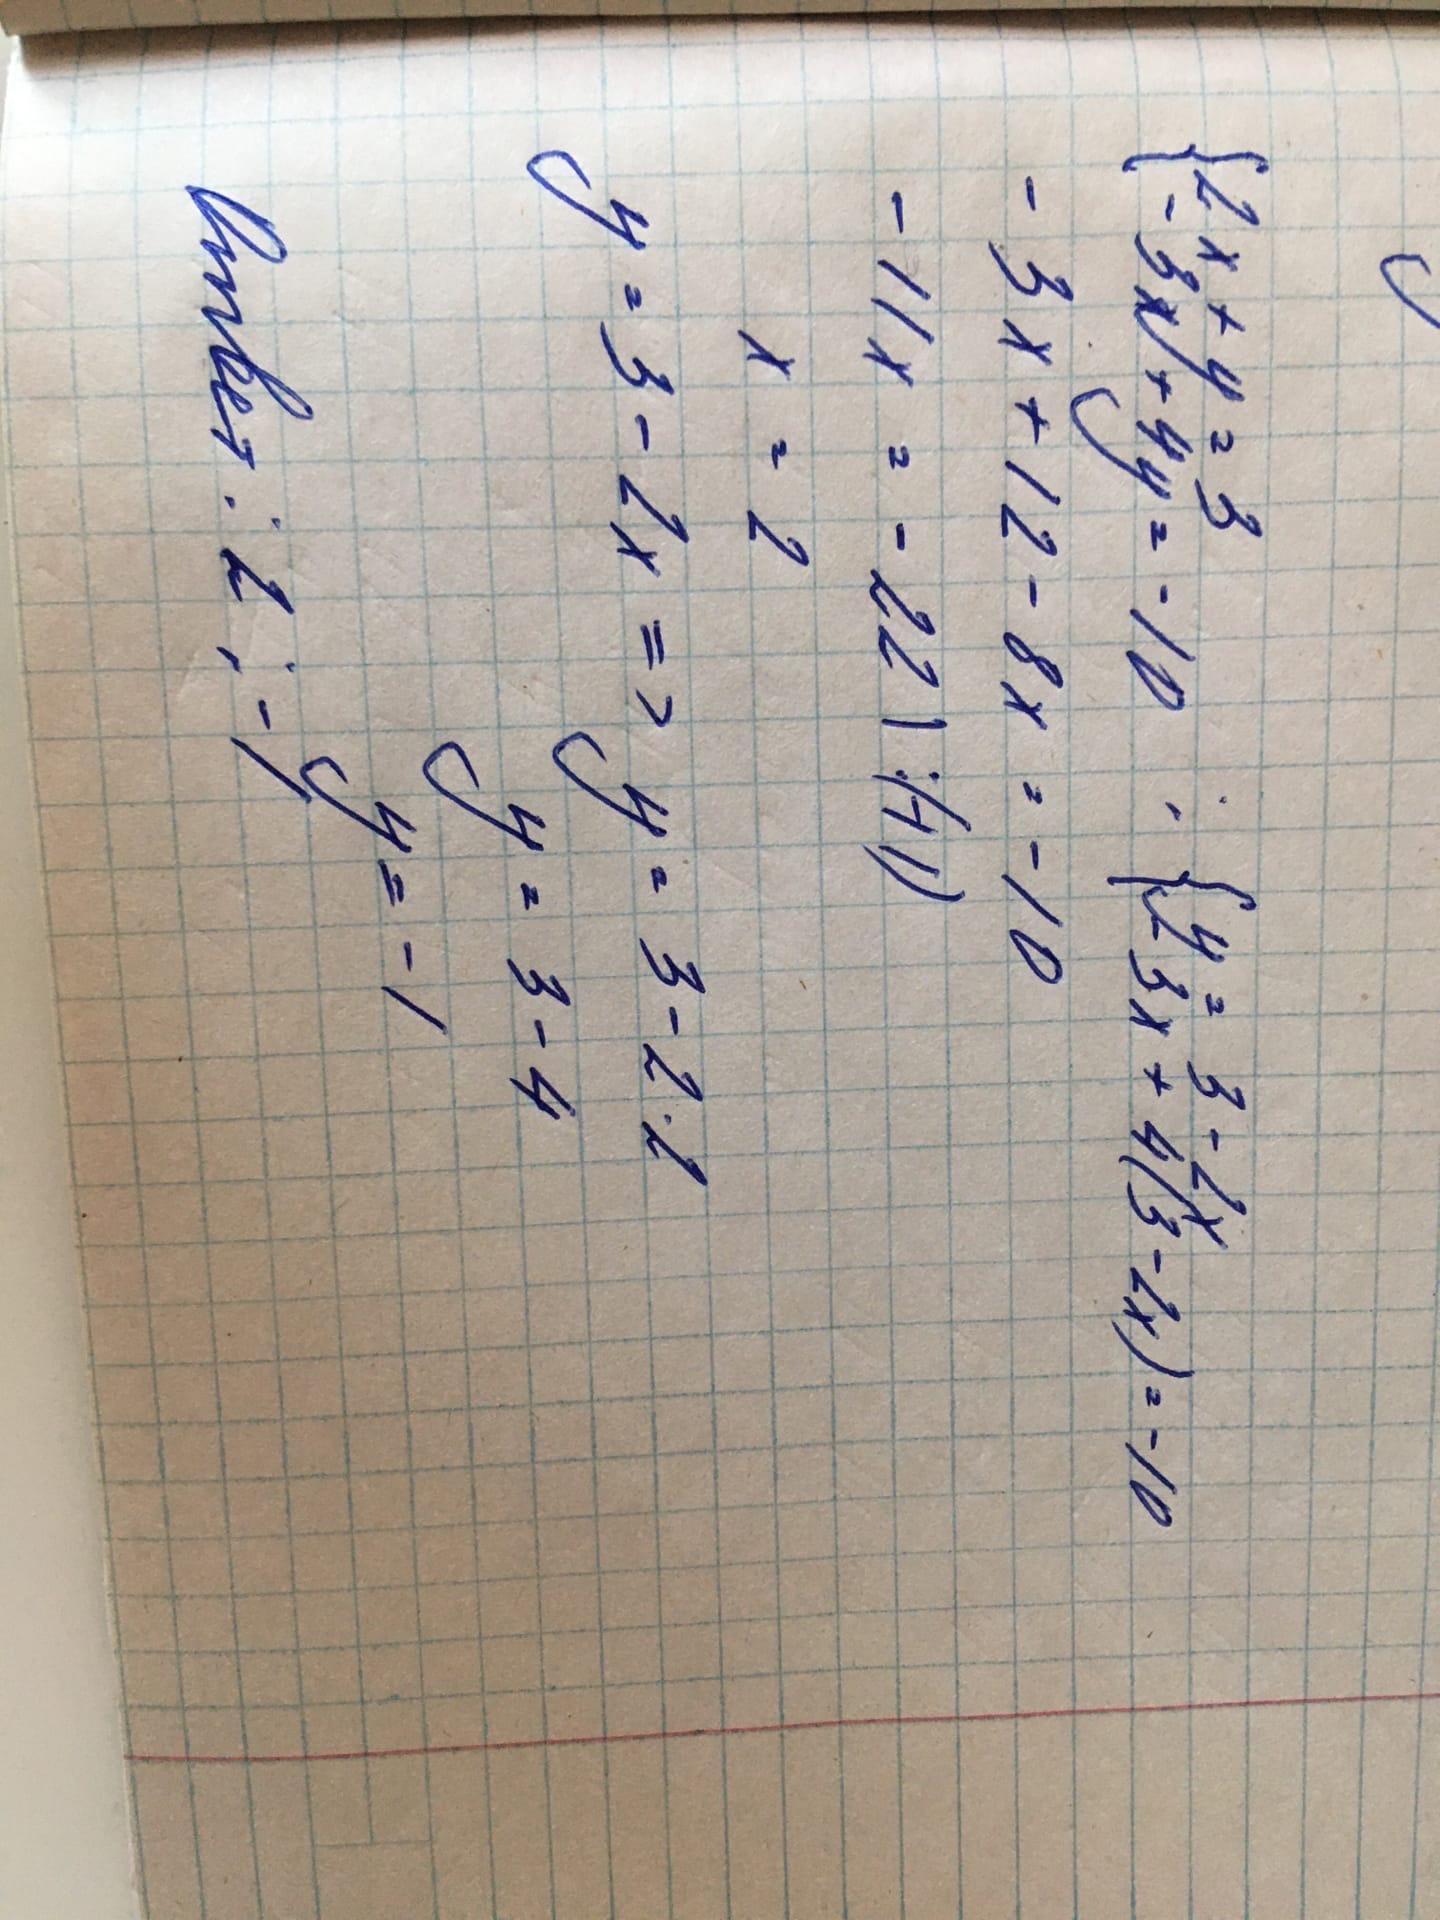 {2x + y = 3
{-3x + 4y = -10 ; {y = 3 - 2x
{-3x + 4(3 - 2x) = -10
- 3x + 12 - 8x = -10
- 11x = - 22 | :(-11)
x = 2
y = 3 - 2x => y = 3 - 2 · 2
y = 3 - 4
y = -1
Ответ: 2 ; -1